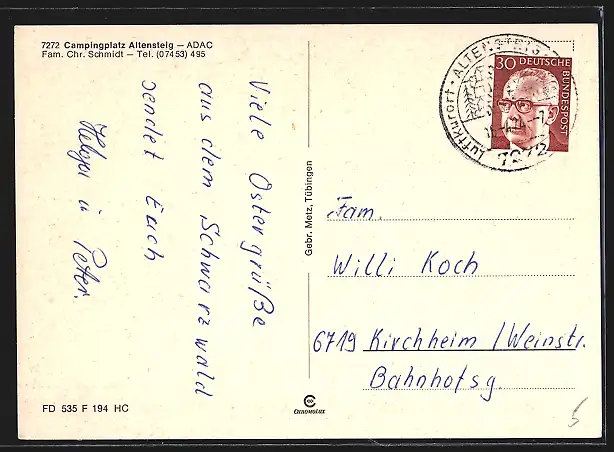 7272 Campingplatz Altensteig — ADAC
Fam. Chr. Schmidt — Tel. (07453) 495
Viele Ostergrüße
aus dem Schwarzwald
sendet Euch
Helga u Peter.
Gebr. Metz, Tübingen
Luftkurort · ALTENSTEIG
7272
30 DEUTSCHE
BUNDESPOST
Fam.
Willi Koch
6719 Kirchheim /Weinstr.
Bahnhofsg.
FD 535 F 194 HC
CHROMOLUX
5